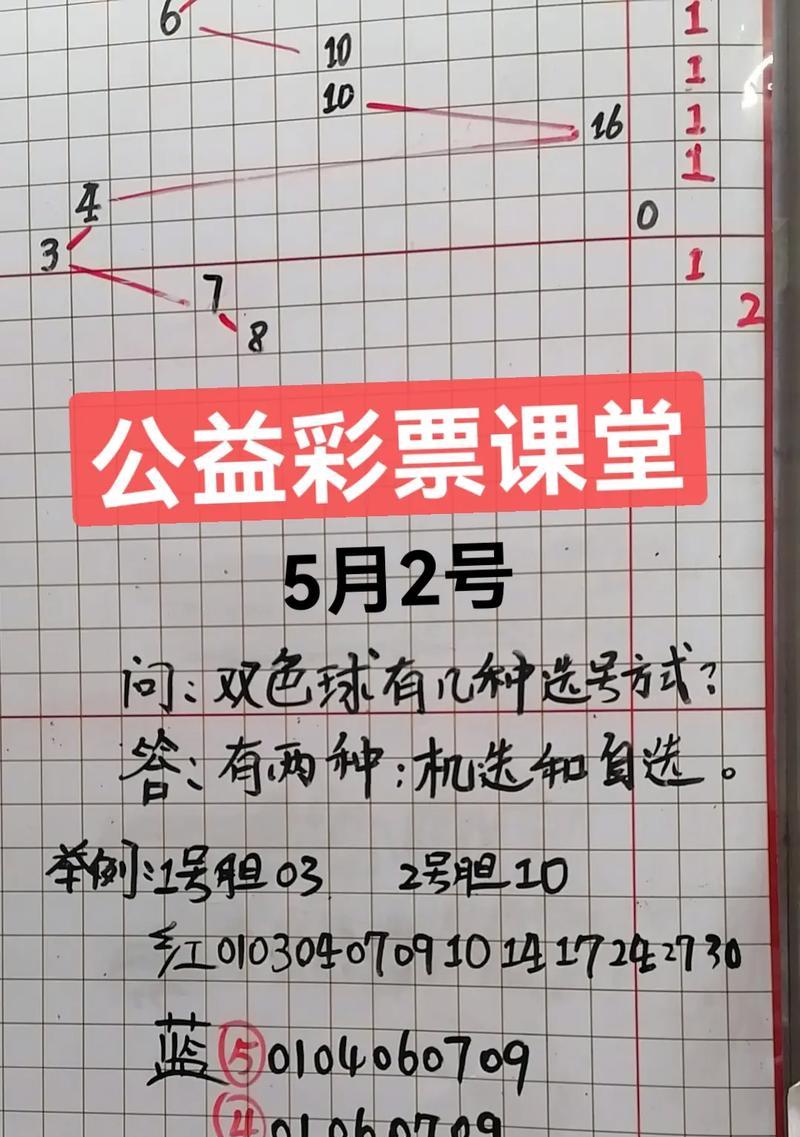 6 1
10 1
10 1
16
4 1
0
3 1
7 2
8
公益彩票课堂
5月2号
问:双色球有几种选号方式?
答:有两种:机选和自选。
举例:1号胆03 2号胆10
红0103040709101417242730
蓝⑤0104060709
④01060709